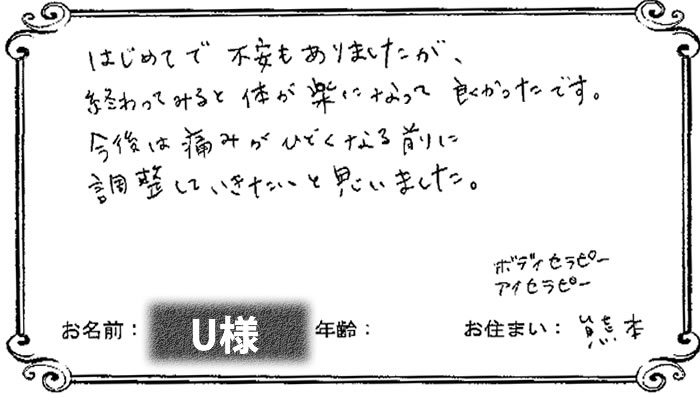 はじめてで 不安もありましたが、
終わってみると 体が 楽になって 良かったです。
今後は 痛みが ひどくなる 前に
調整していきたいと 思いました。
ボディセラピー
アイセラピー
お名前： U様 年齢： お住まい： 熊本